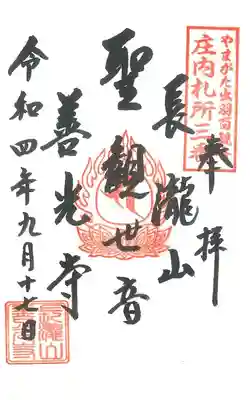 やまがた出羽百観音
庄内札所三番
奉拝
長瀧山
聖觀世音
善光寺
令和四年九月十七日
長瀧山
善光寺